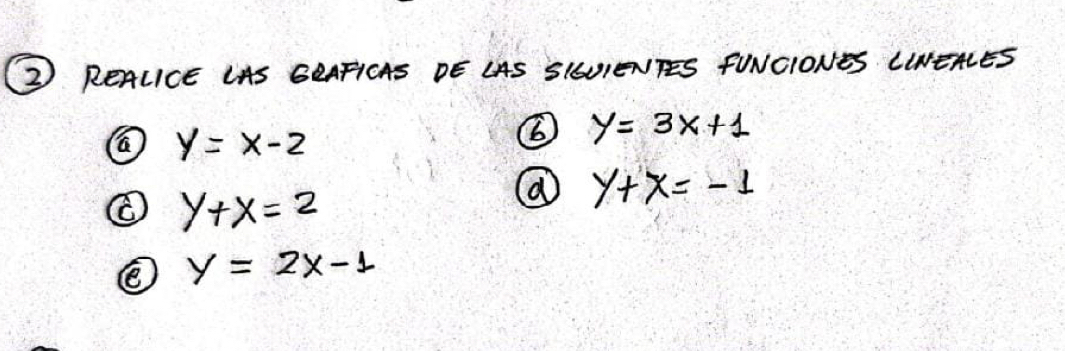 ② REALICE LAS GRAFICAS DE LAS SIGUIENTES FUNCIONES LINEALES
ⓐ y = x-2 ⓑ y = 3x+1
ⓒ y+x = 2 ⓓ y+x = -1
ⓔ y = 2x-1